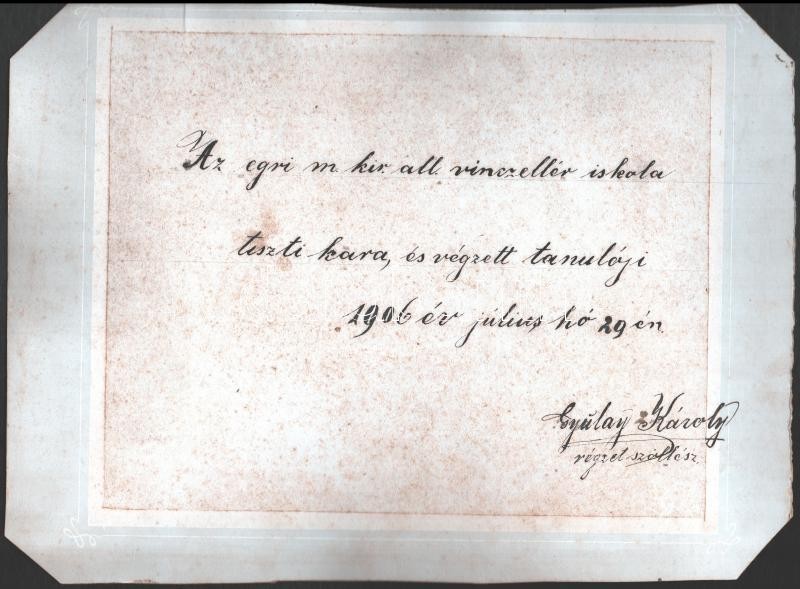 Az egri m. kir. all. vinczellér iskola
tiszti kara, és végzett tanulóji
1906 év július hó 29 én.
Gyulay Károly
végzet szőllész